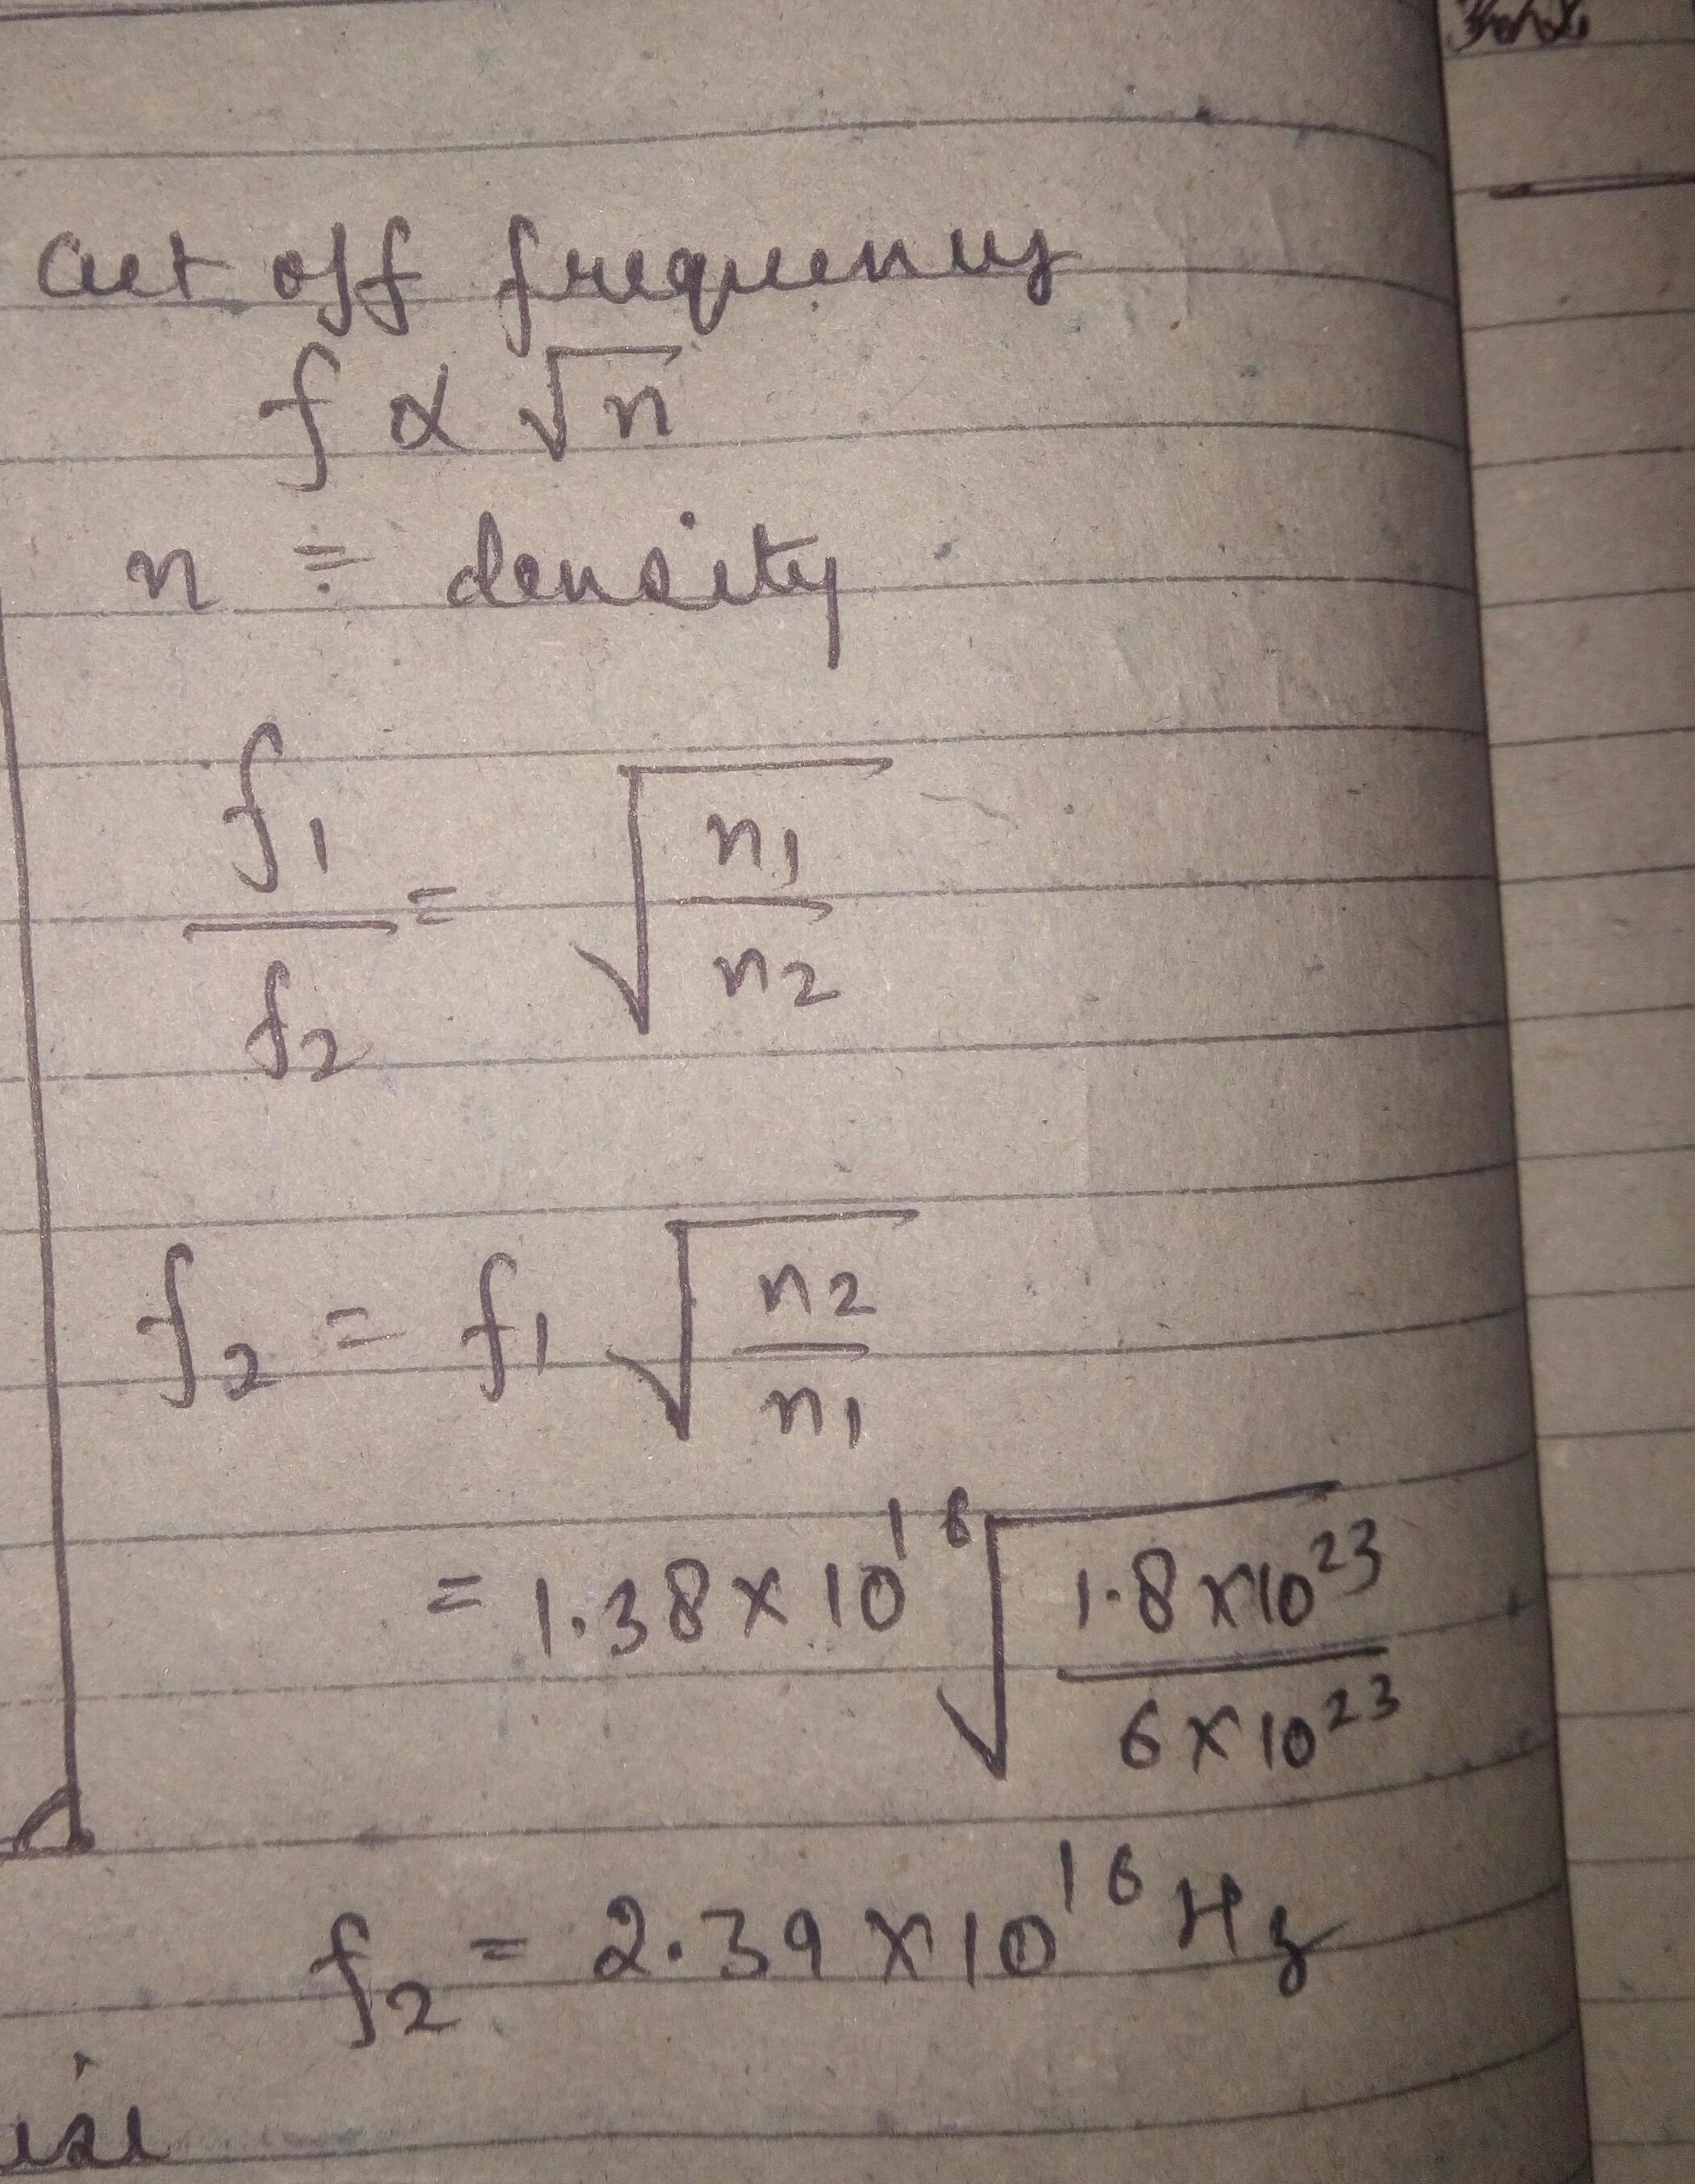 Cut off frequency
f ∝ √n
n = density
f₁/f₂ = √(n₁/n₂)
f₂ = f₁ √(n₂/n₁)
= 1.38 × 10¹⁶ √(1.8 × 10²³ / 6 × 10²³)
f₂ = 2.39 × 10¹⁶ Hz